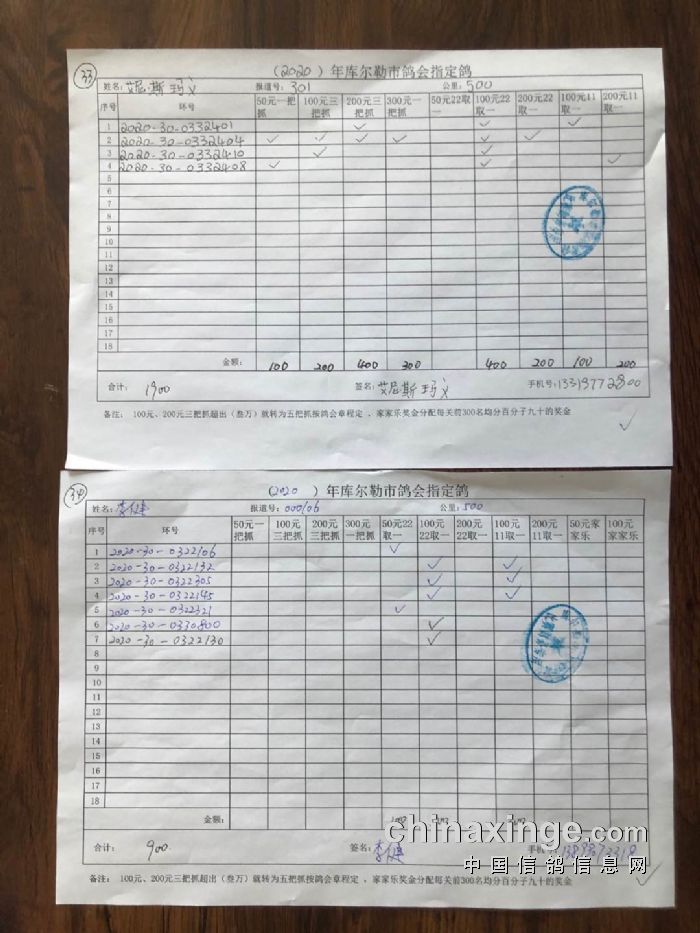 33
（2020）年库尔勒市鸽会指定鸽
姓名：艾尼斯玛义 报道号：301 公里：500
序号 环号 50元一把抓 100元三把抓 200元三把抓 300元一把抓 50元22取一 100元22取一 200元22取一 100元11取一 200元11取一
1 2020-30-0332401 ✓ ✓ ✓
2 2020-30-0332404 ✓ ✓ ✓ ✓ ✓ ✓
3 2020-30-0332410 ✓ ✓
4 2020-30-0332408 ✓ ✓ ✓
5
6
7
8
9
10
11
12
13
14
15
16
17
18
金额： 100 200 400 300 400 200 100 200
合计： 1900 签名：艾尼斯玛义 手机号：13319772800
备注： 100元、200元三把抓超出（叁万）就转为五把抓按鸽会章程定 、家家乐奖金分配每关前300名均分百分子九十的奖金
34
（2020 ）年库尔勒市鸽会指定鸽
姓名：李健 报道号：000106 公里：500
序号 环号 50元一把抓 100元三把抓 200元三把抓 300元一把抓 50元22取一 100元22取一 200元22取一 100元11取一 200元11取一 50元家家乐 100元家家乐
1 2020-30-0322106 ✓
2 2020-30-0322132 ✓ ✓
3 2020-30-0322305 ✓ ✓
4 2020-30-0322145 ✓ ✓
5 2020-30-0322321 ✓
6 2020-30-0330800 ✓
7 2020-30-0322130 ✓
8
9
10
11
12
13
14
15
16
17
18
金额： 100
合计： 900 签名：李健 手机号：
备注： 100元、200元三把抓超出（叁万）就转为五把抓按鸽会章程定 、家家乐奖金分配每关前300名均分百分子九十的奖金
chinaxinge.com
中国信鸽信息网